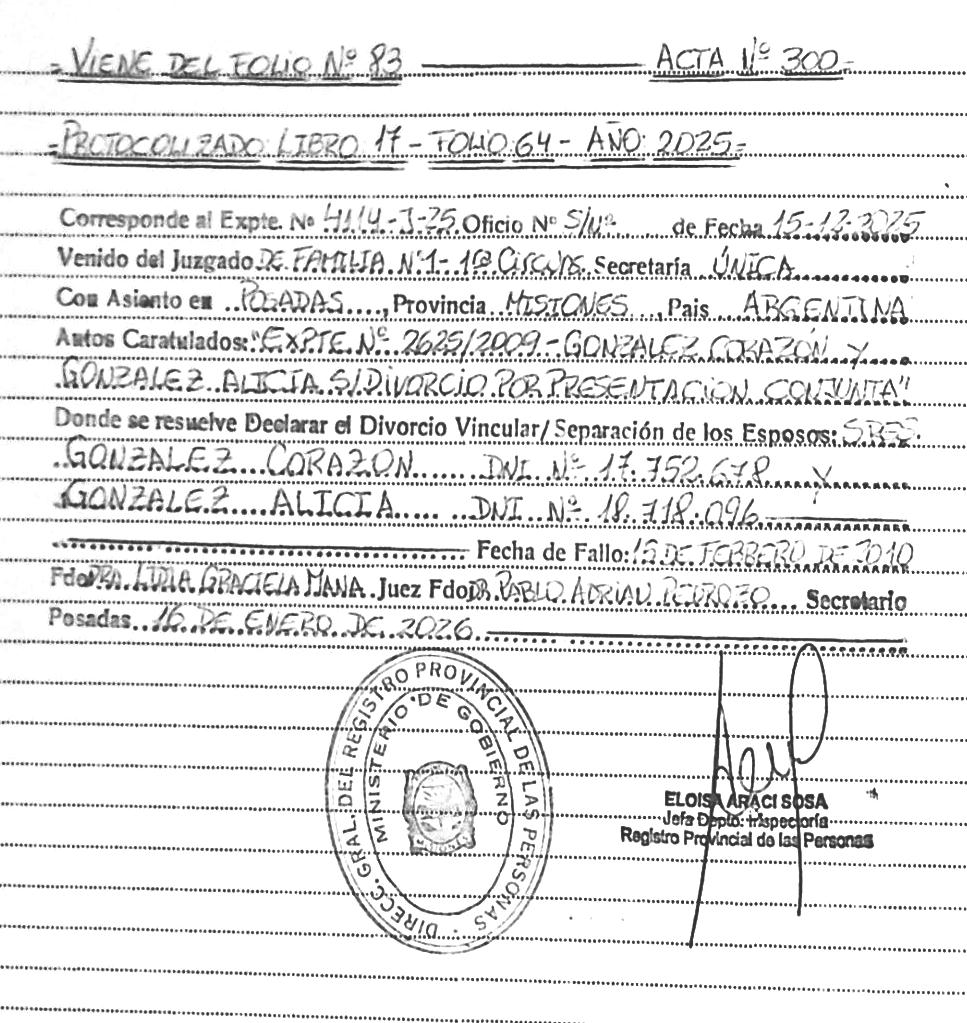 = VIENE DEL FOLIO Nº 83 ——— ACTA Nº 300=
=PROTOCOLIZADO: LIBRO 17 - FOLIO: 64 - AÑO: 2025=
Corresponde al Expte. Nº 4114-J-25 Oficio Nº S/Nº de Fecha 15-12-2025
Venido del Juzgado DE FAMILIA Nº1- 1ra CIRCUNS. Secretaría ÚNICA
Con Asiento en POSADAS, Provincia MISIONES, Pais ARGENTINA
Autos Caratulados: "EXPTE. Nº 2625/2009 - GONZALEZ CORAZÓN Y
GONZALEZ ALICIA S/DIVORCIO POR PRESENTACIÓN CONJUNTA"
Donde se resuelve Declarar el Divorcio Vincular/ Separación de los Esposos: SRES.
GONZALEZ CORAZON DNI Nº 17.752.678 Y
GONZALEZ ALICIA DNI Nº 18.718.096
Fecha de Fallo: 15 DE FEBRERO DE 2010
Fdo DRA. LIDIA GRACIELA MANA Juez Fdo DR. PABLO ADRIAN PEDROZO Secretario
Posadas 16 DE ENERO DE 2026
DIRECC. GRAL. DEL REGISTRO PROVINCIAL DE LAS PERSONAS
MINISTERIO DE GOBIERNO
ELOISA ARACI SOSA
Jefa Depto. Inspectoría
Registro Provincial de las Personas